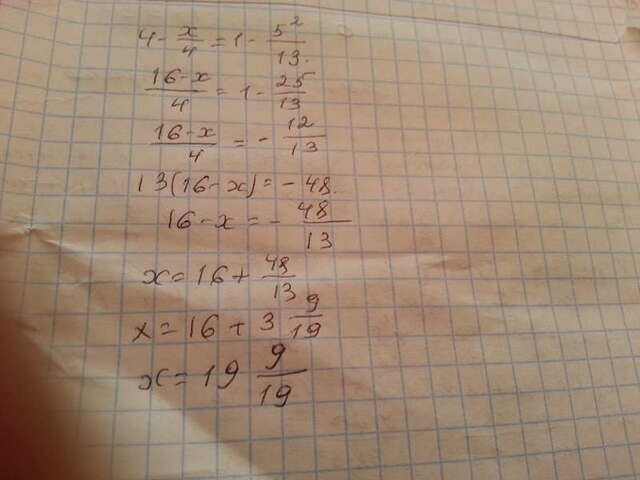 4 - x/4 = 1 - 5²/13.
(16-x)/4 = 1 - 25/13
(16-x)/4 = - 12/13
13(16-x) = - 48.
16-x = - 48/13
x = 16 + 48/13
x = 16 + 3 9/19
x = 19 9/19